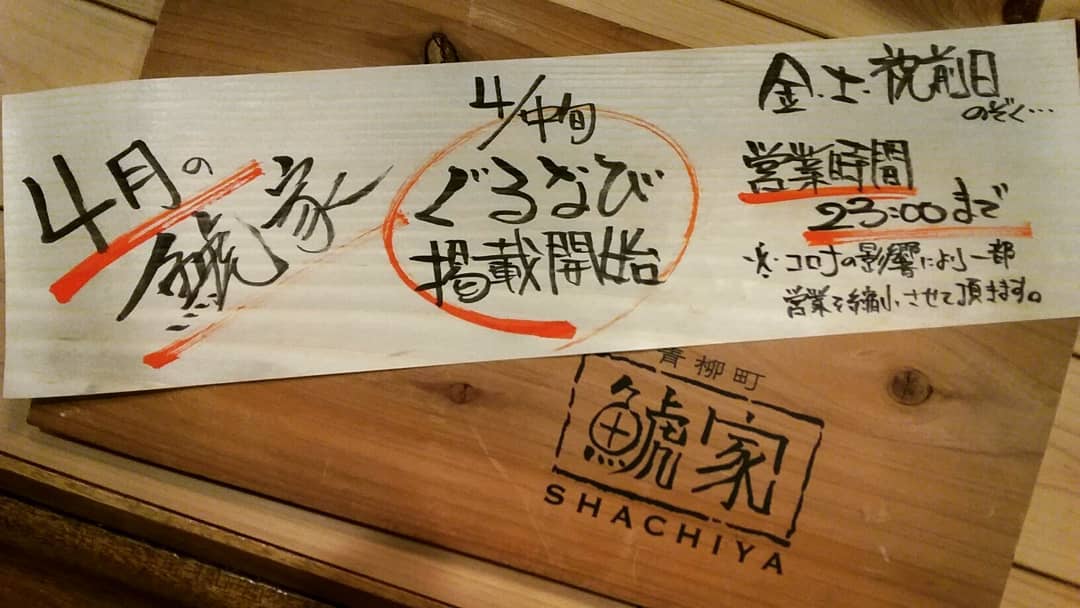 4月の
鯱家
4/中旬
ぐるなび
掲載開始
金・土・祝前日
のぞく…
営業時間
23:00まで
※コロナの影響により一部
営業を縮小させて頂きます。
青柳町
鯱家
SHACHIYA